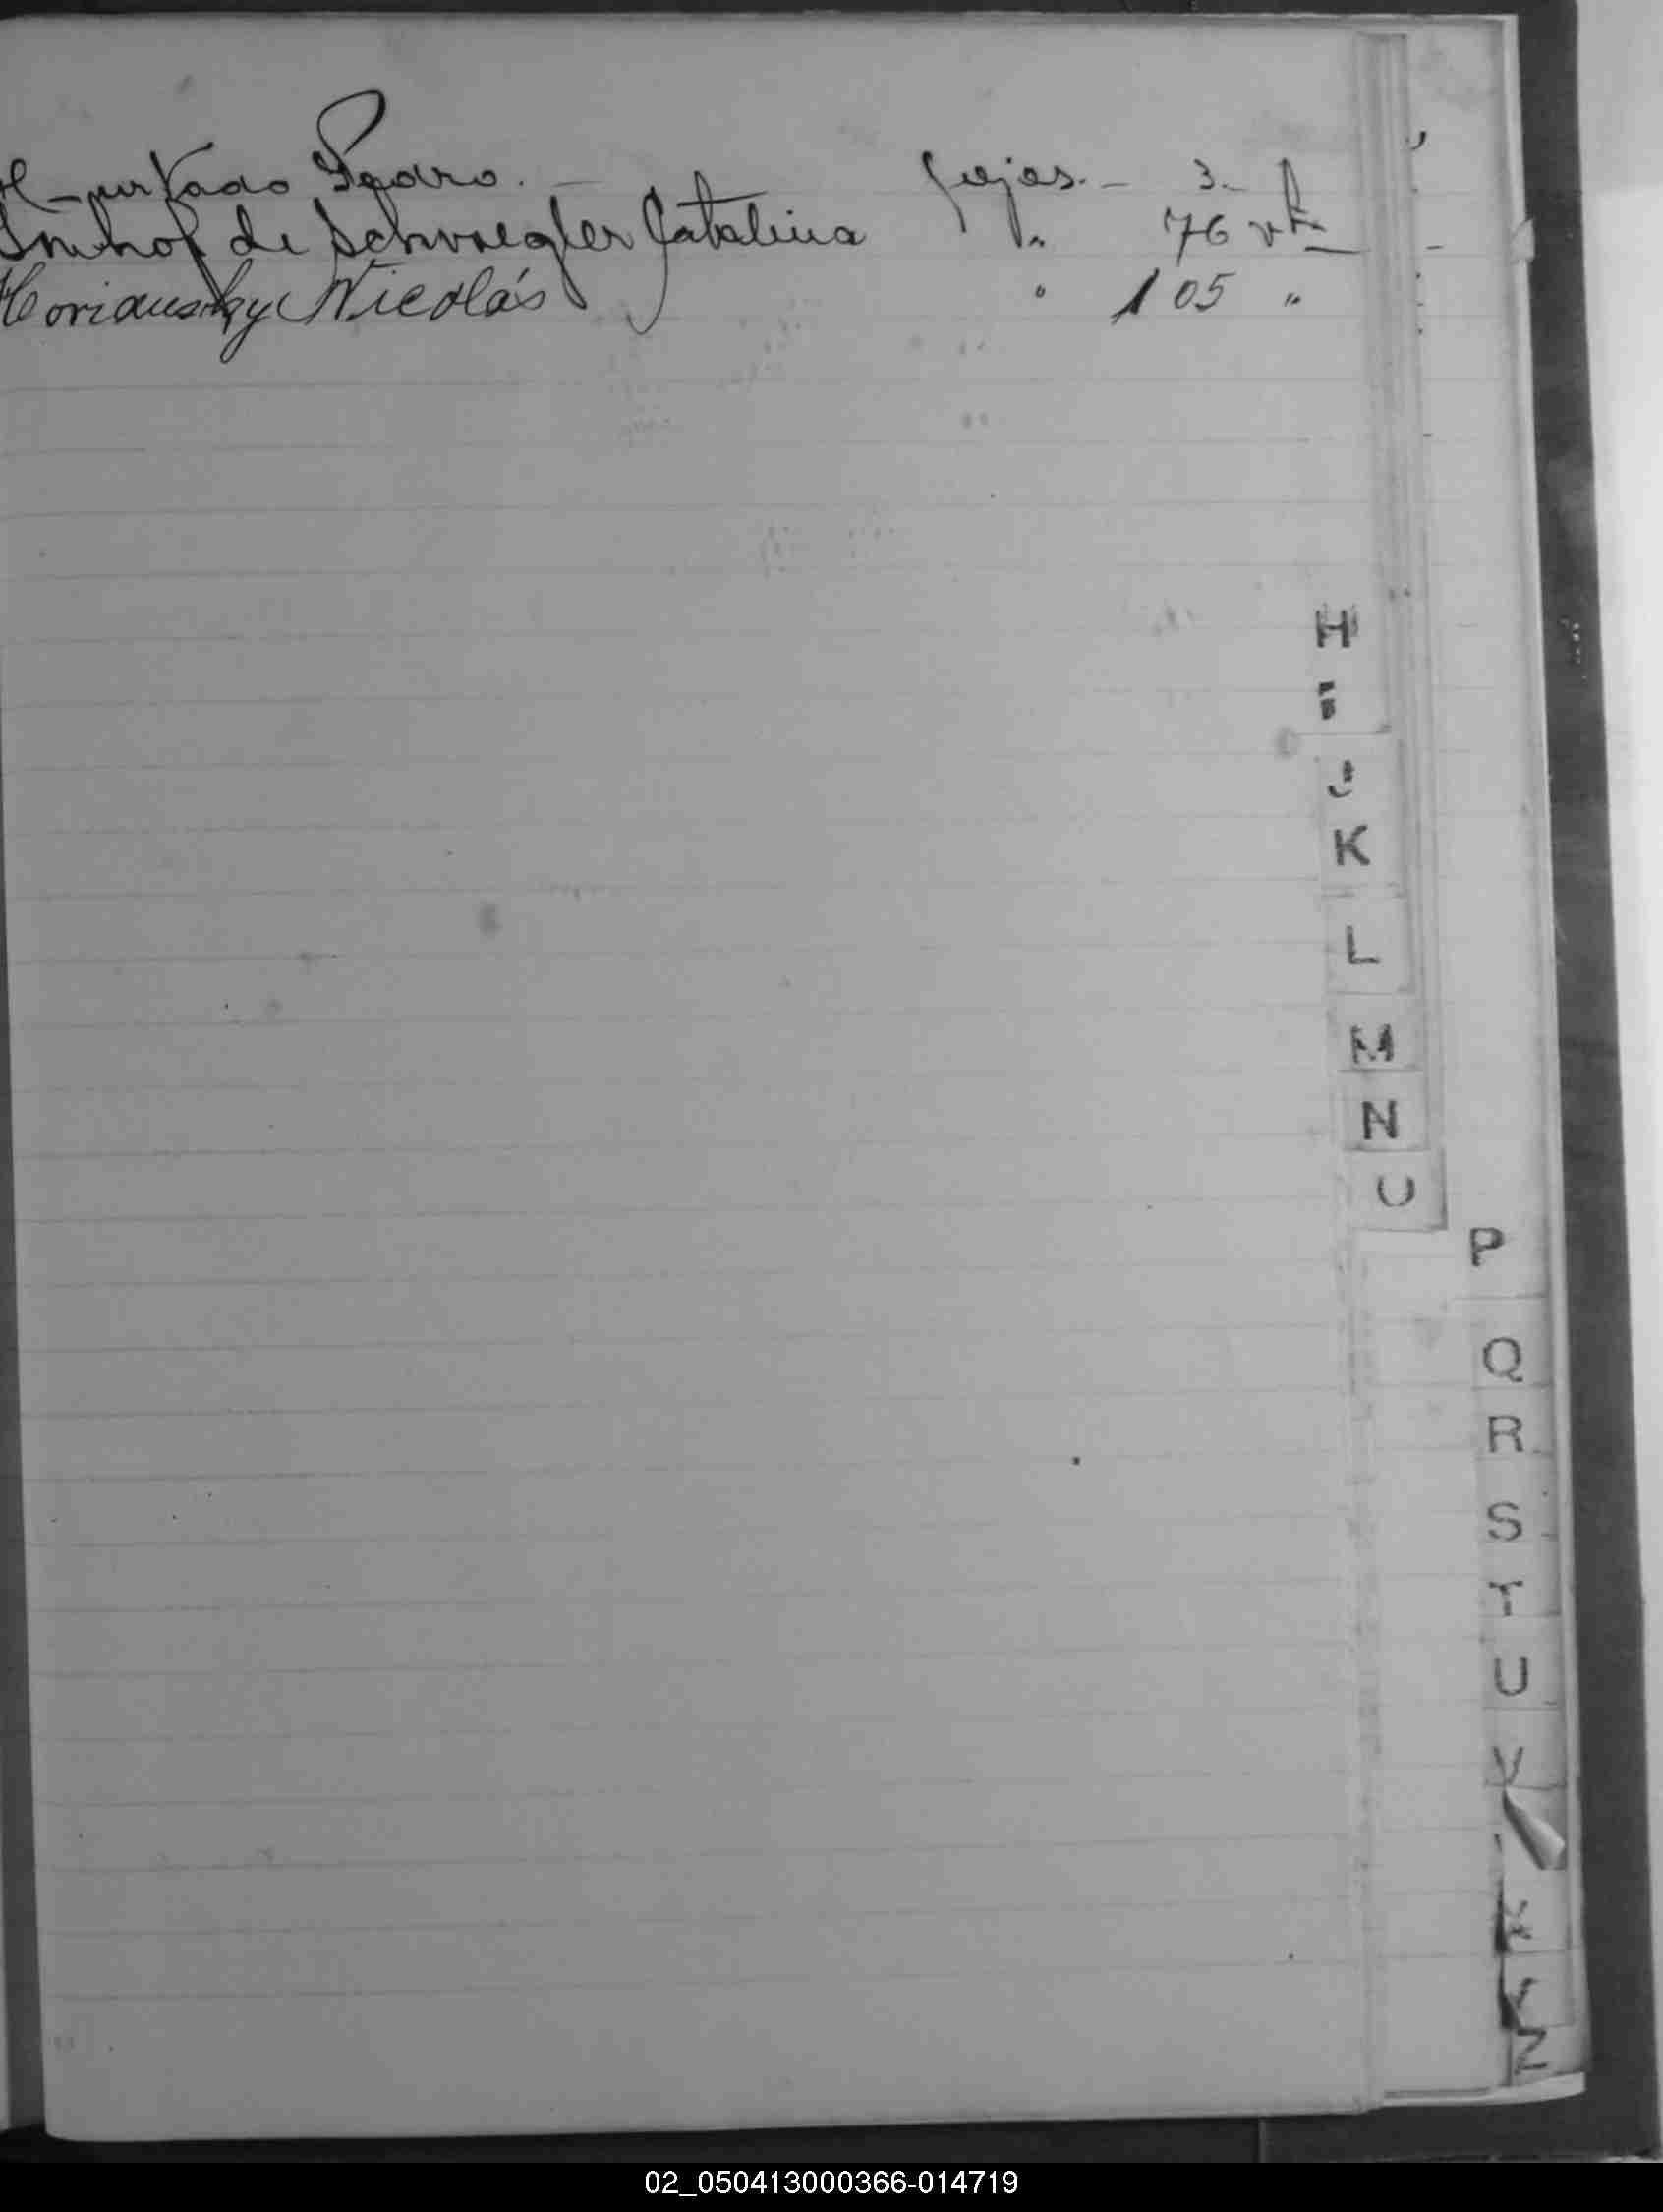 Hurtado Pedro. — fojas. — 3. —
Imhof de Schwegler Catalina " 76 vta
Horiansky Nicolás " 105 "
H
I
J
K
L
M
N
O
P
Q
R
S
T
U
V
Y
Z
02_050413000366-014719